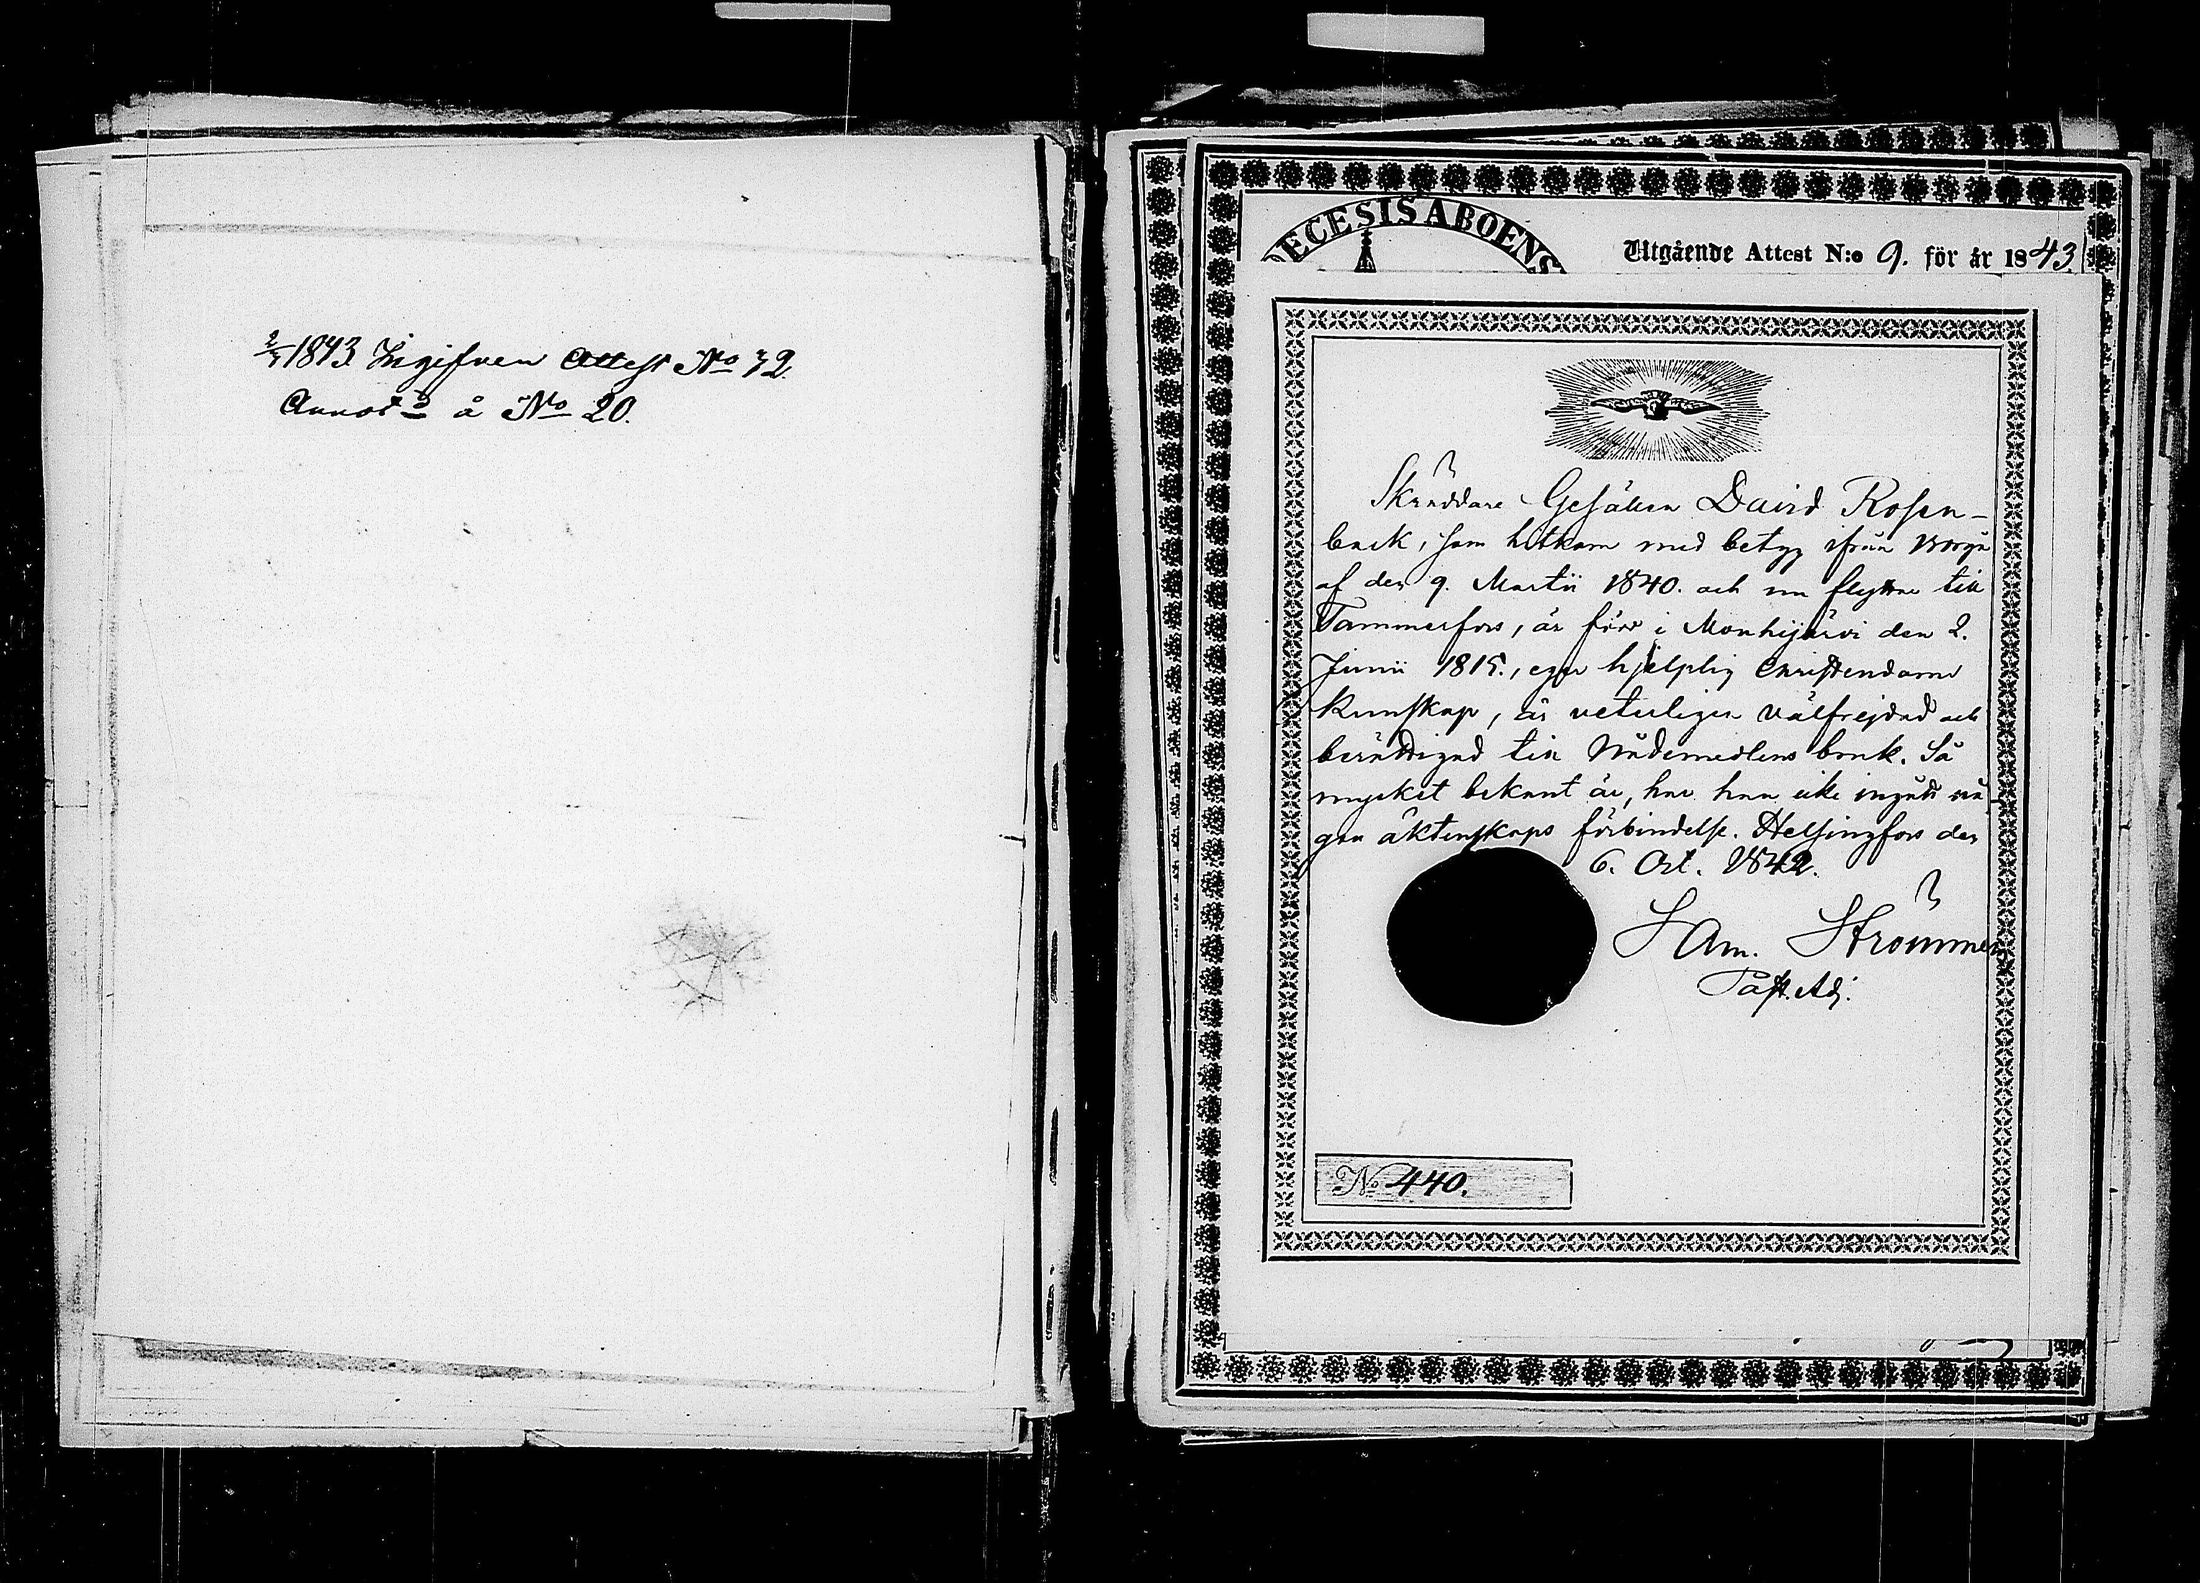 2/3 1843. Ingifven Attest No 32.
Annot:d å No 20.
ECESIS ABOENS
Utgående Attest N:o 9. för år 1843
Skräddare Gesällen David Rosen-
back, som hitkom med betyg ifrån Borgå
af den 9. Martii 1840. och nu flyttar till
Tammerfors, är född i Mouhijärvi den 2.
Junii 1815., eger hjelplig Christendoms
kunskap, är veterligen välfrejdad och
berättigad till Nådemedlens bruk. Så
mycket bekant är, har han icke ingått nå-
gon äktenskaps förbindelse. Helsingfors den
6. Oct. 1842.
Sam. Strömmer
Past. Adj.
No 440.